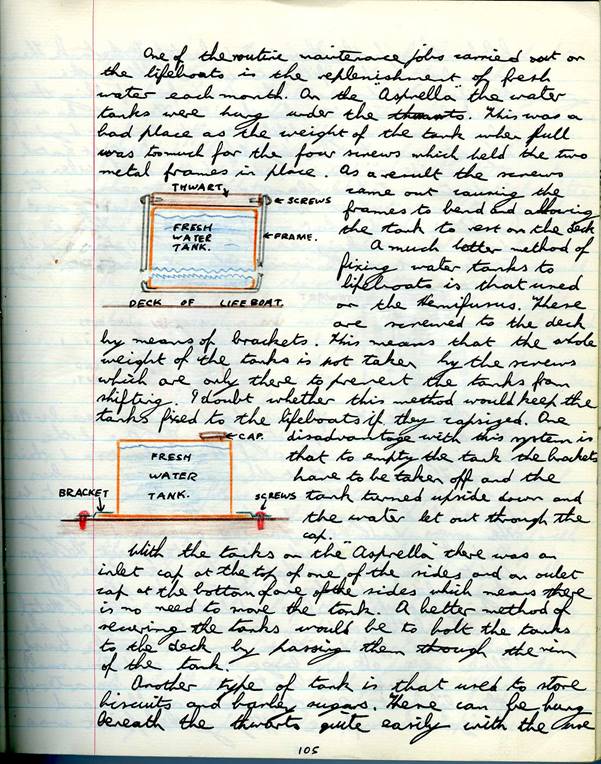 One of the routine maintenance jobs carried out on
the lifeboats is the replenishment of fresh
water each month. On the "Asprella" the water
tanks were hung under the thwarts. This was a
bad place as the weight of the tank when full
was toomuch for the four screws which held the two
metal frames in place. As a result the screws
came out causing the
frames to bend and allowing
the tank to rest on the deck
THWART.
SCREWS
FRESH
WATER
TANK.
FRAME.
DECK OF LIFEBOAT.
A much better method of
fixing water tanks to
lifeboats is that used
on the Hemifusus. These
are screwed to the deck
by means of brackets. This means that the whole
weight of the tanks is not taken by the screws
which are only there to prevent the tanks from
shifting. I doubt whether this method would keep the
tanks fixed to the lifeboats if they capsized. One
disadvantage with this system is
that to empty the tank the brackets
have to be taken off and the
tank turned upside down and
the water let out through the
cap.
CAP.
FRESH
WATER
TANK.
BRACKET
SCREWS
With the tanks on the "Asprella" there was an
inlet cap at the top of one of the sides and an oulet
cap at the bottom of one of the sides which means there
is no need to move the tank. A better method of
securing the tanks would be to bolt the tanks
to the deck by passing them through the rim
of the tank.
Another type of tank is that used to store
biscuits and barley sugars. These can be hung
beneath the thwarts quite easily with the use
105